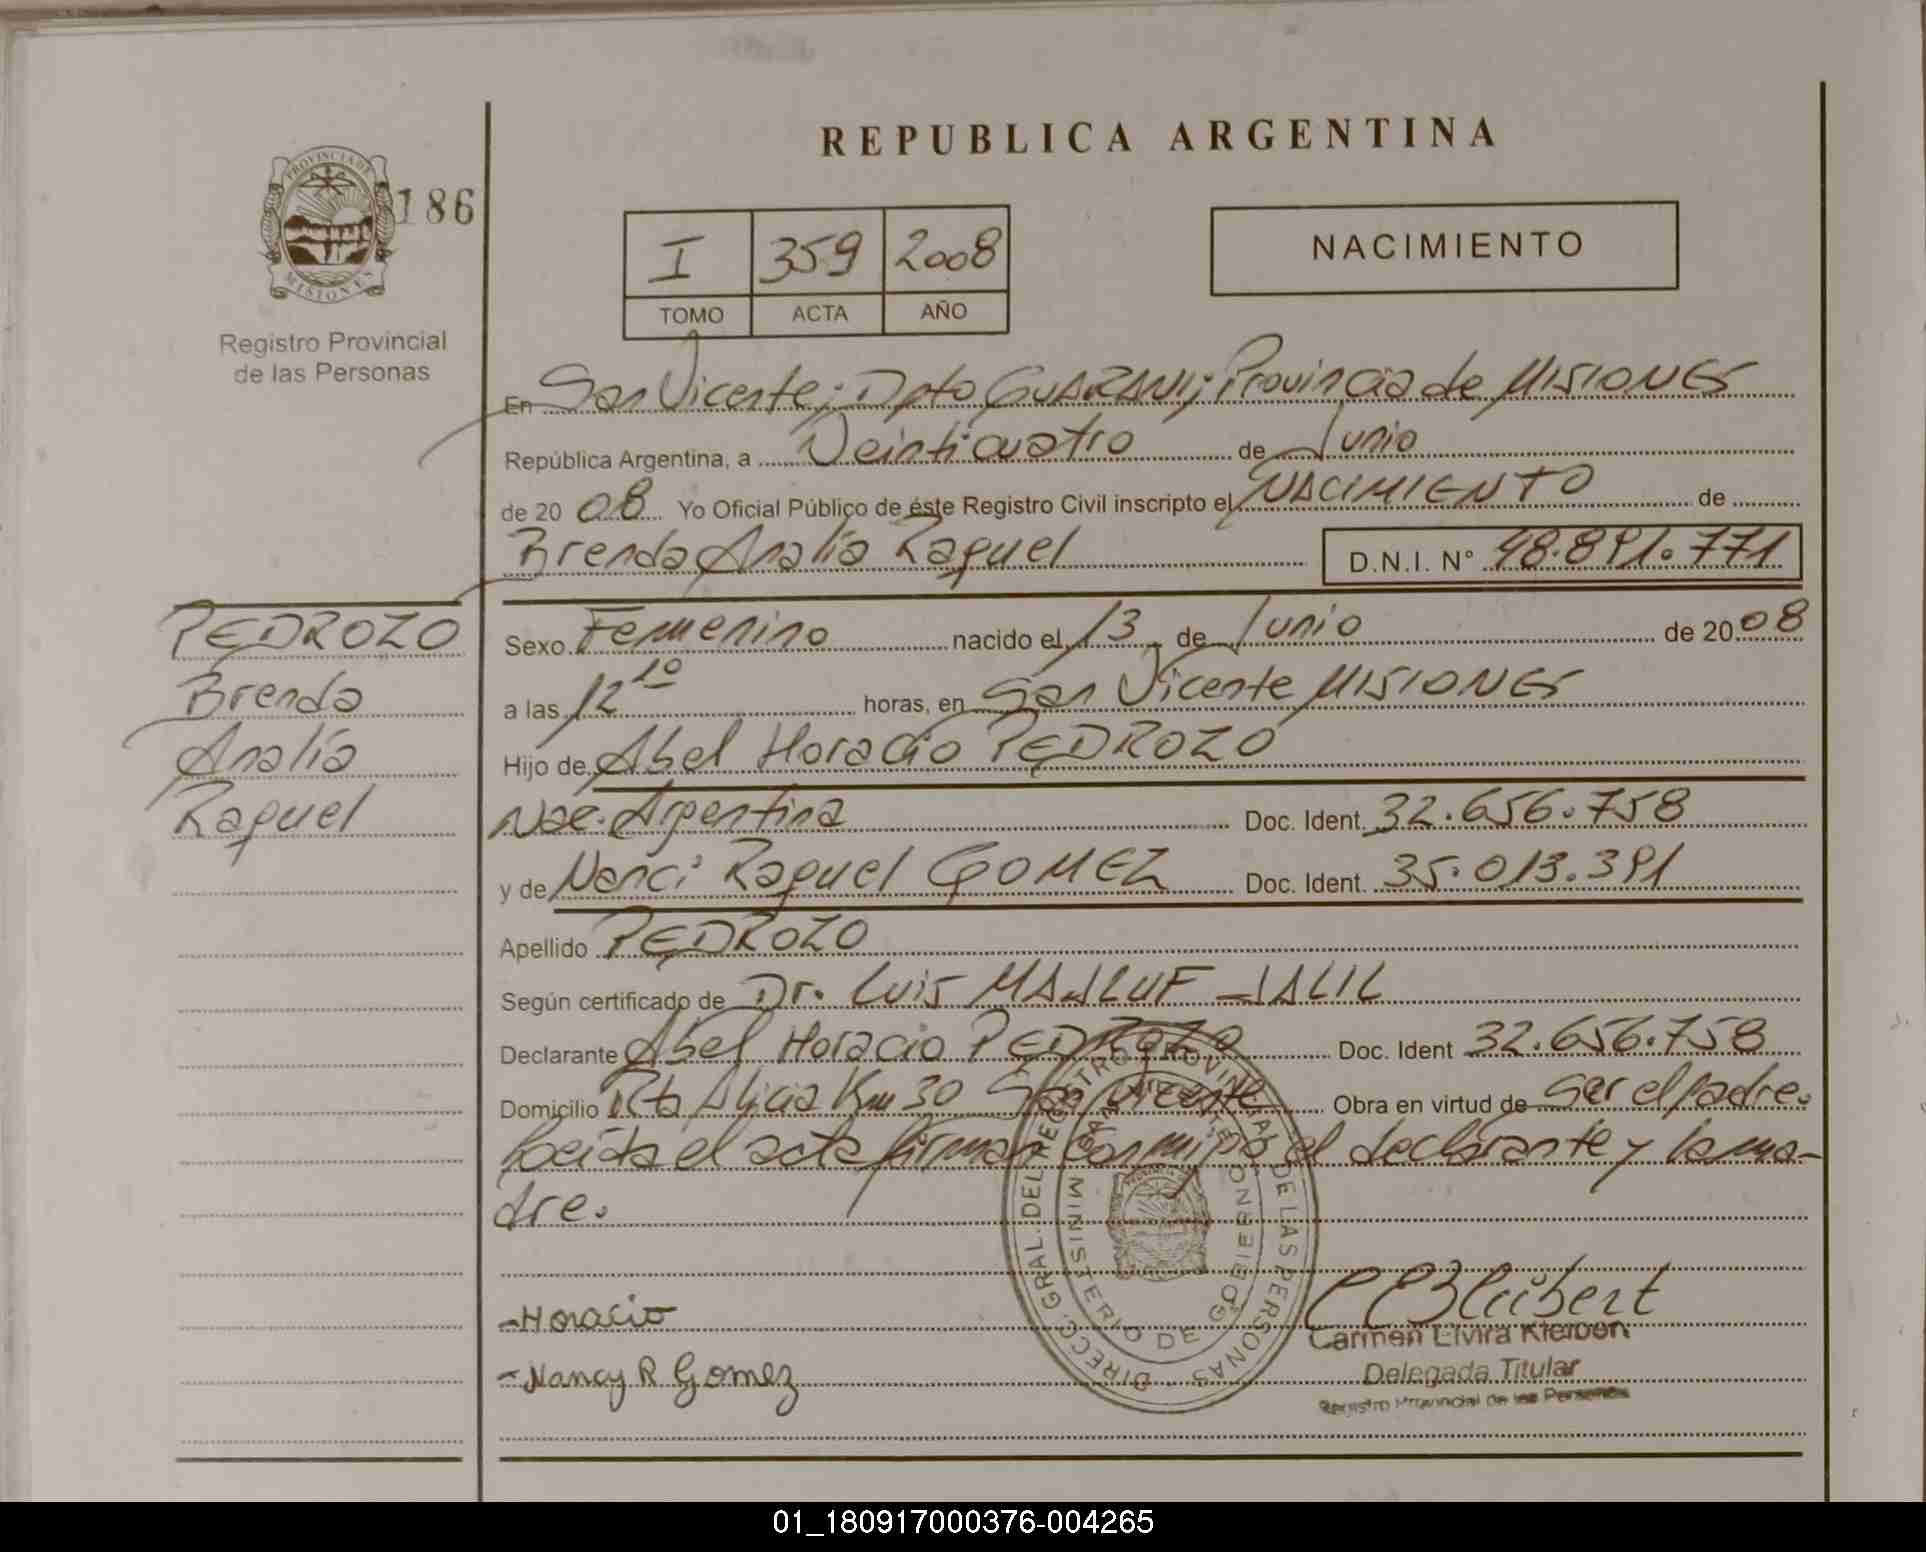 REPUBLICA ARGENTINA
PROVINCIA DE
MISIONES
186
Registro Provincial
de las Personas
I 359 2008
TOMO ACTA AÑO
NACIMIENTO
En San Vicente; Dpto GUARANI; Provincia de MISIONES
República Argentina, a Veinticuatro de Junio
de 2008 Yo Oficial Público de éste Registro Civil inscripto el NACIMIENTO de
Brenda Analía Raquel D.N.I. N° 48.891.771
PEDROZO
Brenda
Analía
Raquel
Sexo Femenino nacido el 13 de Junio de 2008
a las 12 10 horas, en San Vicente MISIONES
Hijo de Abel Horacio PEDROZO
Nac. Argentina Doc. Ident. 32.656.758
y de Nanci Raquel GOMEZ Doc. Ident. 35.013.391
Apellido PEDROZO
Según certificado de Dr. Luis MAJLUF JALIL
Declarante Abel Horacio PEDROZO Doc. Ident 32.656.758
Domicilio Rta Alicia Km 30 San Vicente Obra en virtud de ser el padre.
Leída el acta firman conmigo el declarante y la ma-
dre.
DIRECC. GRAL. DEL REGISTRO PROVINCIAL DE LAS PERSONAS
MINISTERIO DE GOBIERNO
-Horacio
-Nancy R Gomez
Carmen Elvira Kleibert
Delegada Titular
Registro Provincial de las Personas
01_180917000376-004265